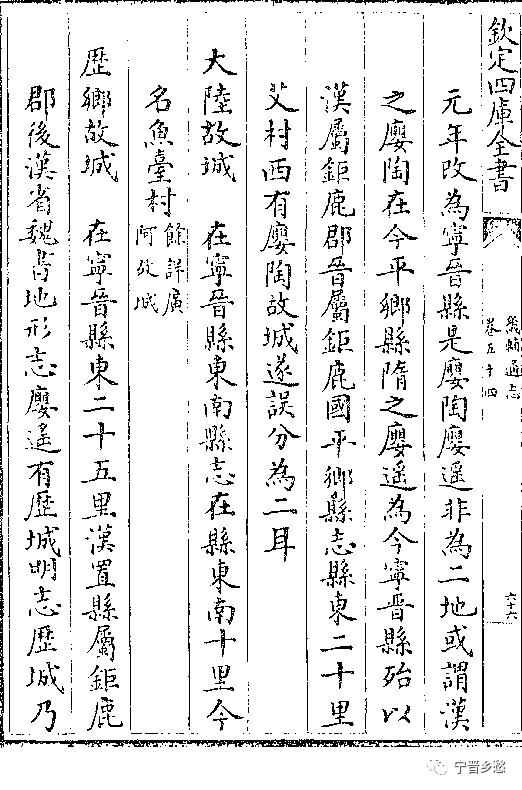 欽定四庫全書
畿輔通志
卷五十四
六十六
元年改為寧晉縣是廮陶廮遥非為二地或謂漢
之廮陶在今平鄉縣隋之廮遥為今寧晉縣殆以
漢屬鉅鹿郡晉屬鉅鹿國平鄉縣志縣東二十里
艾村西有廮陶故城遂誤分為二耳
大陸故城 在寧晉縣東南縣志在縣東南十里今
名魚臺村 餘詳廣
阿故城
歴鄉故城 在寧晉縣東二十五里漢置縣屬鉅鹿
郡後漢省魏書地形志廮遥有歴城明志歴城乃
宁晋乡愁